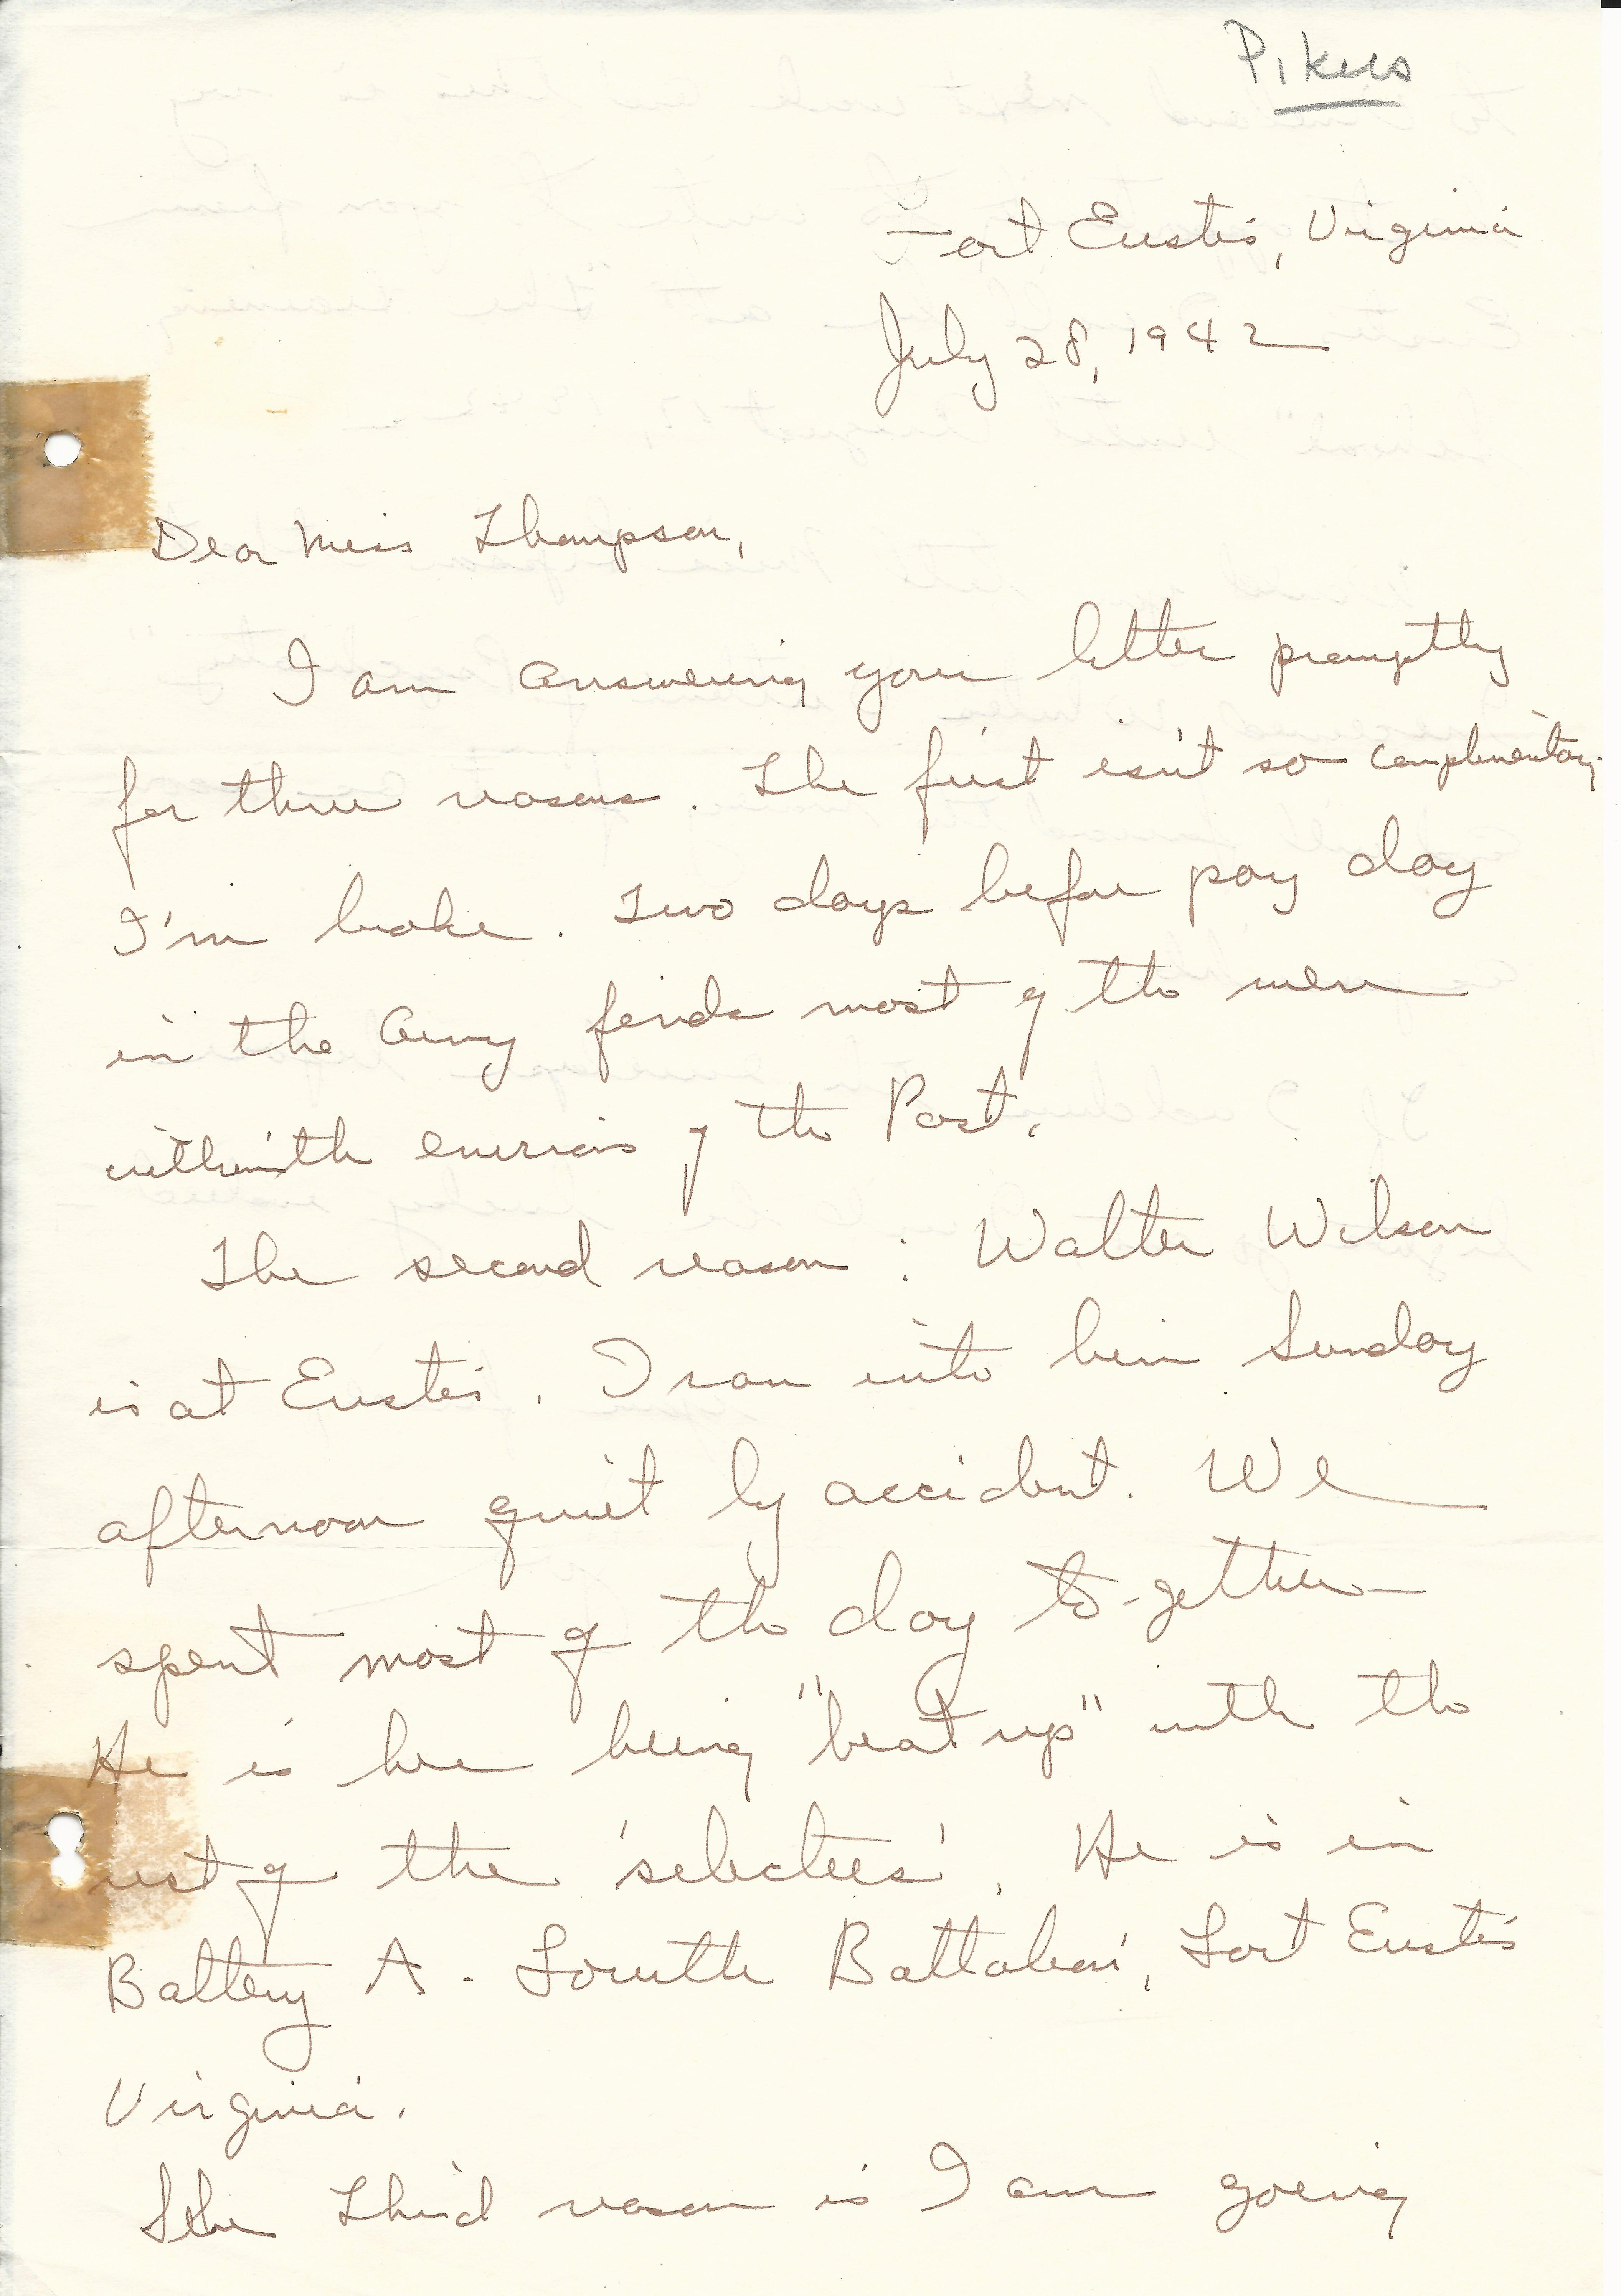 Pikus
Fort Eustis, Virginia
July 28, 1942
Dear Miss Thompson,
I am answering your letter promptly
for three reasons. The first isn't so complimentary.
I'm broke. Two days before pay day
in the Army finds most of the men
within the environs of the Post.
The second reason: Walter Wilson
is at Eustis. I ran into him Sunday
afternoon quiet by accident. We
spent most of the day to-gether
He is here being "beat up" with the
rest of the 'selectees'. He is in
Battery A - Fourth Battalion, Fort Eustis
Virginia.
The Third reason is I am going